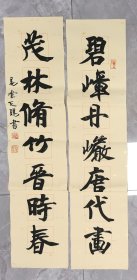 碧嶂丹巖唐代畫
茂林脩竹晉時春